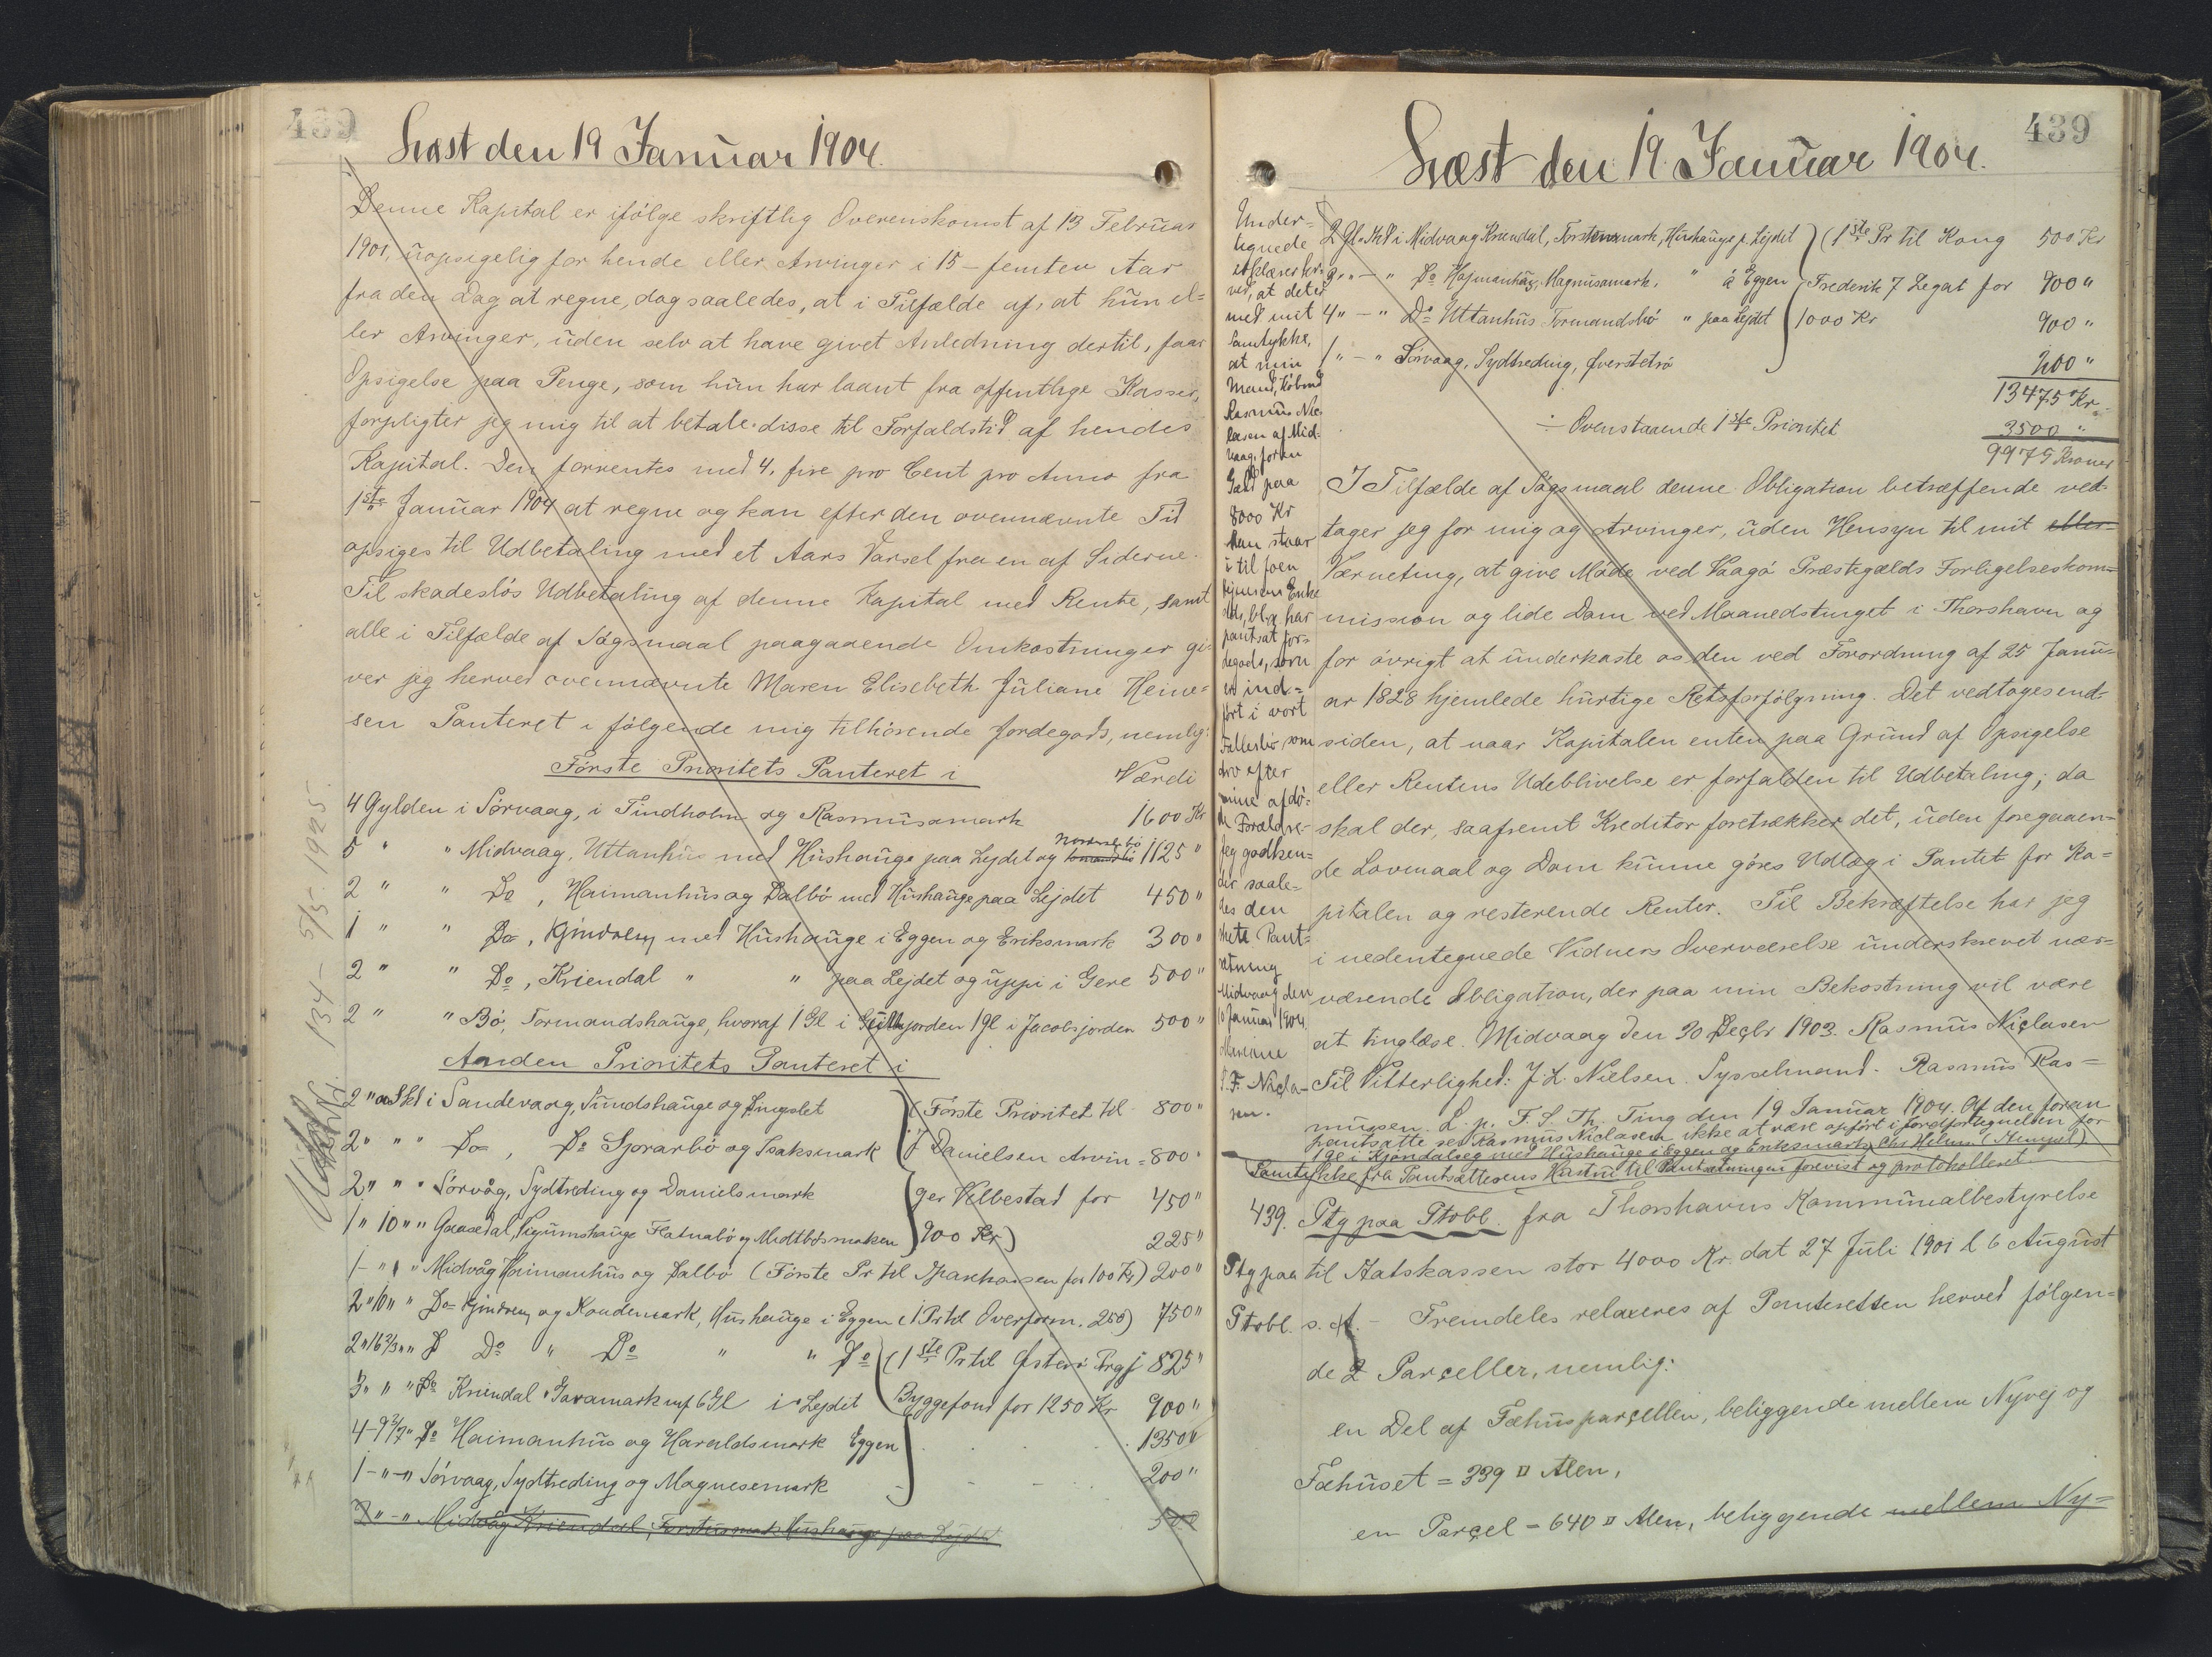 439
Læst den 19 Januar 1904.
Denne Kapital er ifølge skriftlig Overenskomst af 13 Februar
1901, uopsigelig for hende eller Arvinger i 15 - femten Aar
fra den Dag at regne, dog saaledes, at i Tilfælde af, at hun el=
ler Arvinger, uden selv at have givet Anledning dertil, faar
Opsigelse paa Penge, som hun har laant fra offentlige Kasser,
forpligter jeg mig til at betale disse til Forfaldstid af hendes
Kapital. Den forrentes med 4, fire pro Cent pro Anno fra
1ste Januar 1904 at regne og kan efter den ovennævnte Tid
opsiges til Udbetaling med et Aars Varsel fra en af Siderne.
Til skadesløs Udbetaling af denne Kapital med Rente, samt
alle i Tilfælde af Søgsmaal paagaaende Omkostninger gi=
ver jeg herved ovennævnte Maren Elisebeth Juliane Heine=
sen Panteret i følgende mig tilhørende Jordegods, nemlig:
Første Prioritets Panteret i Værdi
4 Gylden i Sørvaag, i Tindholm og Rasmusamark 1600 Kr
5 " " Midvaag, Uttanhus med Hushauge paa Lejdet og 1125 "
2 " " Do, Haimanhus og Dalbø med Hushauge paa Lejdet 450 "
1 " " Do, med Hushauge i Eggen og Eriksmark 300 "
2 " " Do, Kriendal " " paa Lejdet og uppi i Gere 500 "
2 " " Bø, Tormandshauge, hvoraf 1 Gl i 1 gl i Jacobsjorden 500 "
Anden Prioritets Panteret i
2 " Skl i Sandevaag, Sundshauge og (Første Prioritet til 800 "
2 " " " Do, Do Gjorarbø og Isaksmark J Danielsen Arvin= 800 "
2 " " " Sørvåg, Sydtreding og Danielsmark ger Velbestad for 450 "
1 " 10 " " Gaasedal, Flatnabø og 900 Kr) 225 "
1 - " " Midvåg Haimanhus og Dalbø (Første Pr til for 100 Kr) 200 "
2 " 10 " " Do og Hushauge i Eggen (1 Pr til Overform. 250) 750 "
2 " 16 2/3 " " Do " Do " " Do (1ste Pr til 825 "
3 " " " Do Kriendal 6 Gl i Lejdet Byggefond for 1250 Kr 900 "
4 - 9 2/7 " Do Haimanhus og Haraldsmark Eggen 1350 "
1 - " - " Sørvaag, Sydtreding og Magnusemark 200 "
2 " - " Midvåg Kriendal, Hushauge paa Lejdet
134 - 5/5. 1925.
439
Læst den 19 Januar 1904.
2 Gl. Skl i Midvaag Kriendal, Hushauge p. Lejdet (1ste Pr til Kong 500 Kr
2 " - " Do Hajmanhus, Magnusamark, " á Eggen Frederik 7 Legat for 900 "
4 " - " Do Uttanhus Tormandsbø " paa Lejdet 1000 Kr 900 "
1 " - " Sørvaag, Sydtreding, Øverstetrø 200 "
13475 Kr.
÷ Ovenstaaende 1ste Prioritet 3500 "
9975 Kroner
I Tilfælde af Søgsmaal denne Obligation betræffende ved=
tager jeg for mig og Arvinger, uden Hensyn til mit eller
Værneting, at give Møde ved Vaagø Præstegælds Forligelseskom=
mission og lide Dom ved Maanedstinget i Thorshavn og
for øvrigt at underkaste os den ved Forordning af 25 Janu=
ar 1828 hjemlede hurtige Retsforfølgning. Det vedtages end=
siden, at naar Kapitalen enten paa Grund af Opsigelse
eller Rentens Udeblivelse er forfalden til Udbetaling, da
skal der, saafremt Kreditor foretrækker det, uden foregaaen=
de Lovmaal og Dom kunne gøres Udlæg i Pantet for Ka=
pitalen og resterende Renter. Til Bekræftelse har jeg
i nedentegnede Vidners Overværelse underskrevet nær=
værende Obligation, der paa min Bekostning vil være
at tinglæse. Midvaag den 30 Decbr 1903. Rasmus Niclasen
Til Vitterlighed: J. L. Nielsen. Sysselmand. Rasmus Ras=
mussen. L. p. F. S. Th. Ting den 19 Januar 1904. Af den foran
pantsatte ses Rasmus Niclasen ikke at være opført i for
1 gl i med Hushauge i Eggen og Eriksmark. (Stempel)
Samtykke fra Pantsætterens Hustru til Pantsætningen forevist og protokolleret.
Under=
tegnede
erklærer her=
ved, at det er
med mit
Samtykke,
at min
Mand, Købmd
Rasmus Nic=
lasen af Mid=
vaag, for en
Gæld paa
8000 Kr
han staar
i til Joen
Enke
har
pantsat Jor=
degods, som
er ind=
ført i vort
Fællesbo som
Arv efter
mine afdø=
de Forældre.
Jeg godken=
der saale=
des den
skete Pant=
sætning
Midvaag den
10 Januar 1904.
S. F. Nicla=
sen.
439. Ptg paa Ptobl. fra Thorshavns Kommunalbestyrelse
Ptg paa til Aatskassen stor 4000 Kr. dat 27 Juli 1901 l 6 August
Ptobl. s. A. - Fremdeles relaxeres af Panteretten herved følgen=
de 2 Parceller, nemlig:
en Del af Fæhusparcellen, beliggende mellem Nyvej og
Fæhuset = 339 □ Alen,
en Parcel = 640 □ Alen, beliggende mellem Ny=